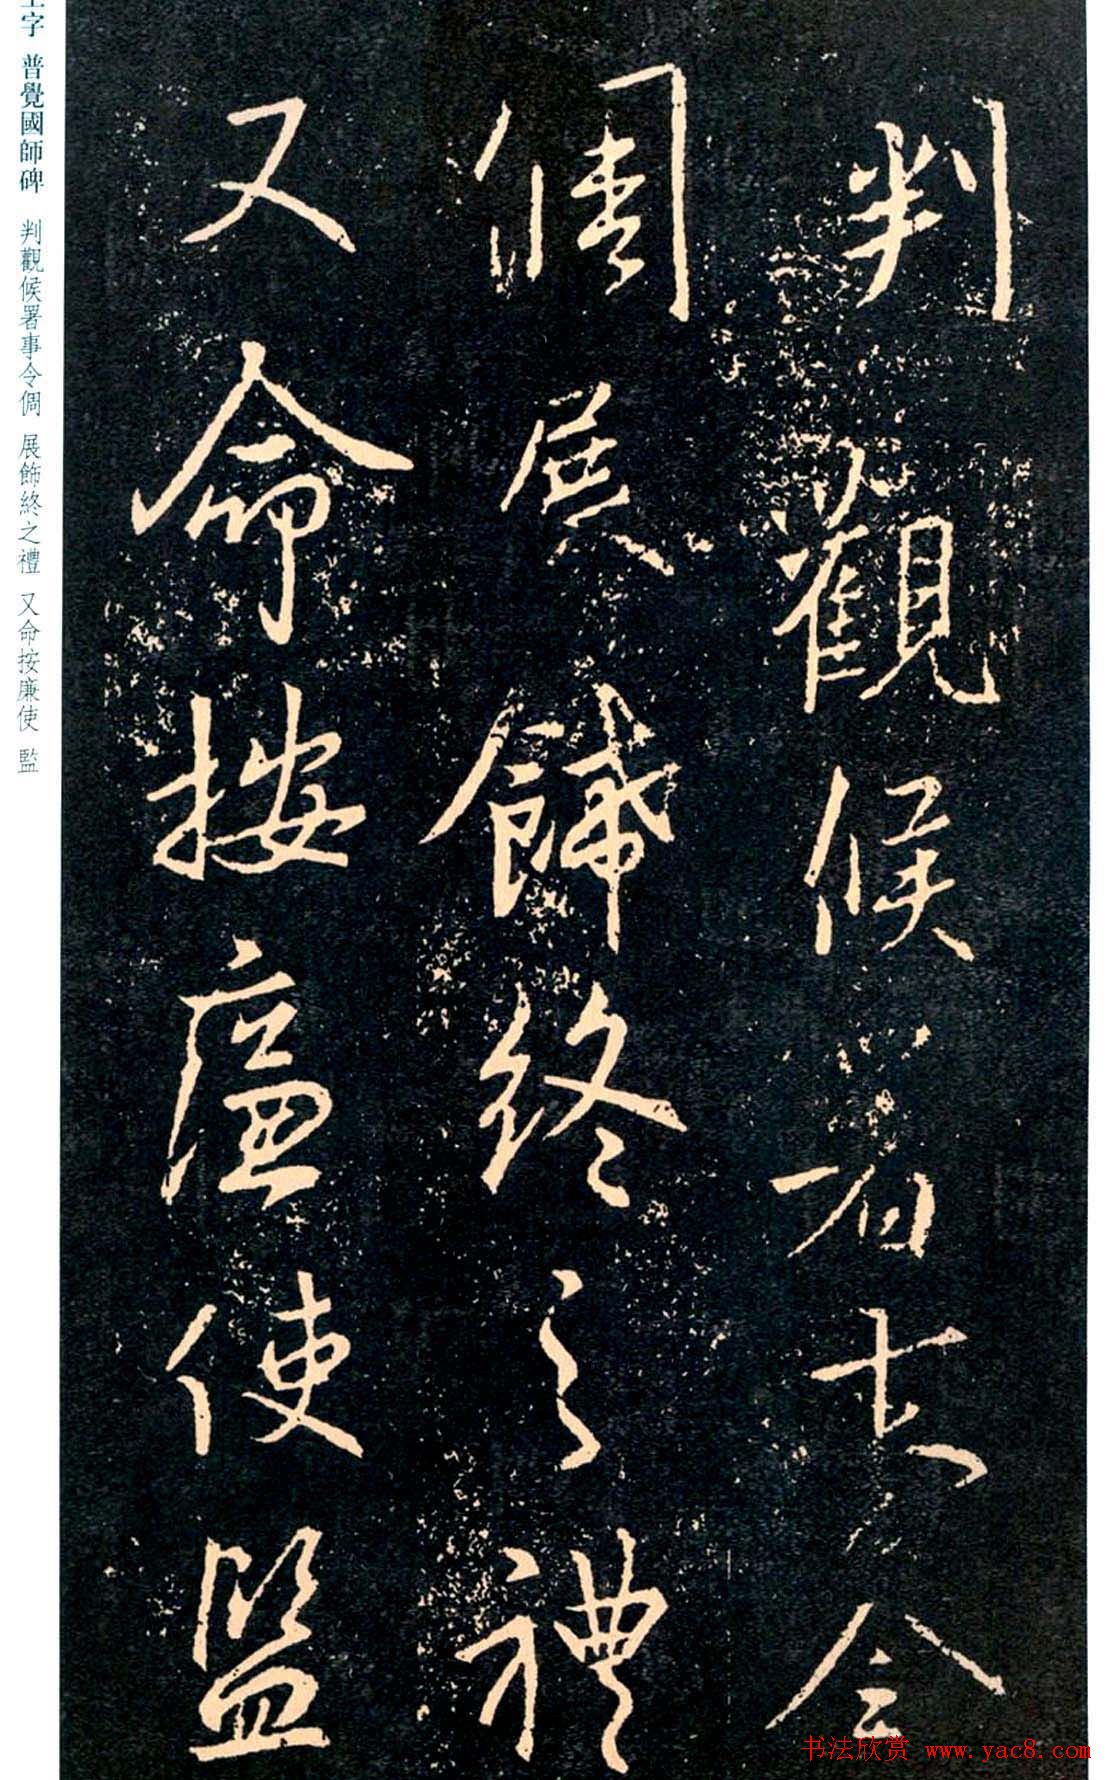 判觀候署事令
倜展飾終之禮
又命按廉使監
王字 普覺國師碑 判觀候署事令倜 展飾終之禮 又命按廉使 監
书法欣赏 www.yac8.com